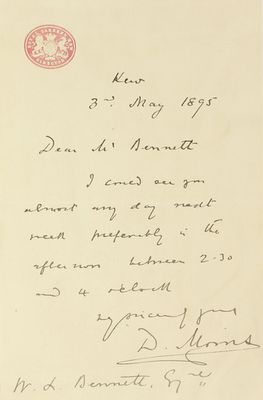 Kew
3rd May 1895
Dear Mr Bennett
I could see you
almost any day next
week preferably in the
afternoon between 2-30
and 4 o'clock
yours
D. Morris
W. L. Bennett, Esqre